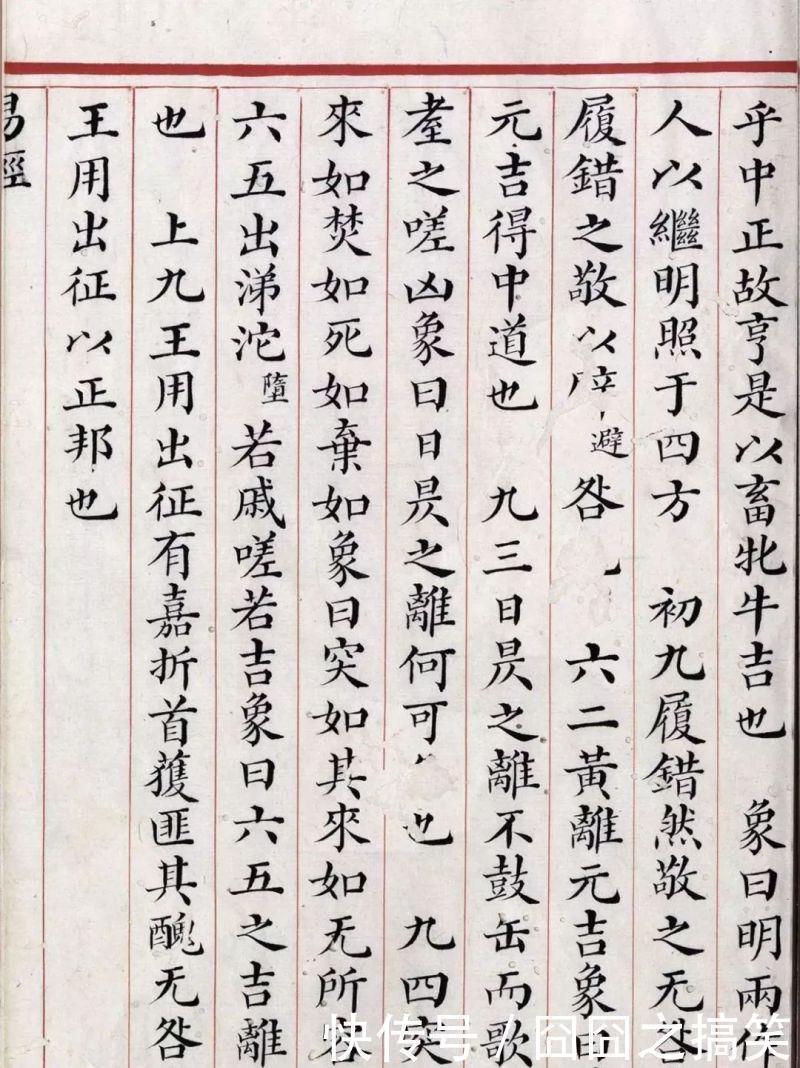 乎中正故亨是以畜牝牛吉也　象曰明兩作
人以繼明照于四方　初九履錯然敬之无咎
履錯之敬以避咎　六二黃離元吉象曰
元吉得中道也　九三日昃之離不鼓缶而歌
耋之嗟凶象曰日昃之離何可也　九四突
來如焚如死如棄如象曰突如其來如无所容
六五出涕沱墮若戚嗟若吉象曰六五之吉離
也　上九王用出征有嘉折首獲匪其醜无咎
王用出征以正邦也
易經
快传号/囧囧之搞笑